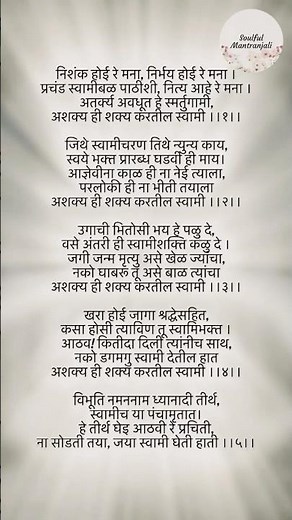 Soulful
Mantranjali
निशंक होई रे मना, निर्भय होई रे मना ।
प्रचंड स्वामीबळ पाठीशी, नित्य आहे रे मना ।
अतर्क्य अवधूत हे स्मर्तुगामी,
अशक्य ही शक्य करतील स्वामी ।।१।।
जिथे स्वामीचरण तिथे न्युन्य काय,
स्वये भक्त प्रारब्ध घडवी ही माय।
आज्ञेवीना काळ ही ना नेई त्याला,
परलोकी ही ना भीती तयाला
अशक्य ही शक्य करतील स्वामी ।।२।।
उगाची भितोसी भय हे पळु दे,
वसे अंतरी ही स्वामीशक्ति कळु दे ।
जगी जन्म मृत्यु असे खेळ ज्यांचा,
नको घाबरू तू असे बाळ त्यांचा
अशक्य ही शक्य करतील स्वामी ।।३।।
खरा होई जागा श्रद्धेसहित,
कसा होसी त्याविण तू स्वामिभक्त ।
आठव! कितीदा दिली त्यांनीच साथ,
नको डगमगु स्वामी देतील हात
अशक्य ही शक्य करतील स्वामी ।।४।।
विभूति नमननाम ध्यानादी तीर्थ,
स्वामीच या पंचामृतात।
हे तीर्थ घेइ आठवी रे प्रचिती,
ना सोडती तया, जया स्वामी घेती हाती ।।५।।